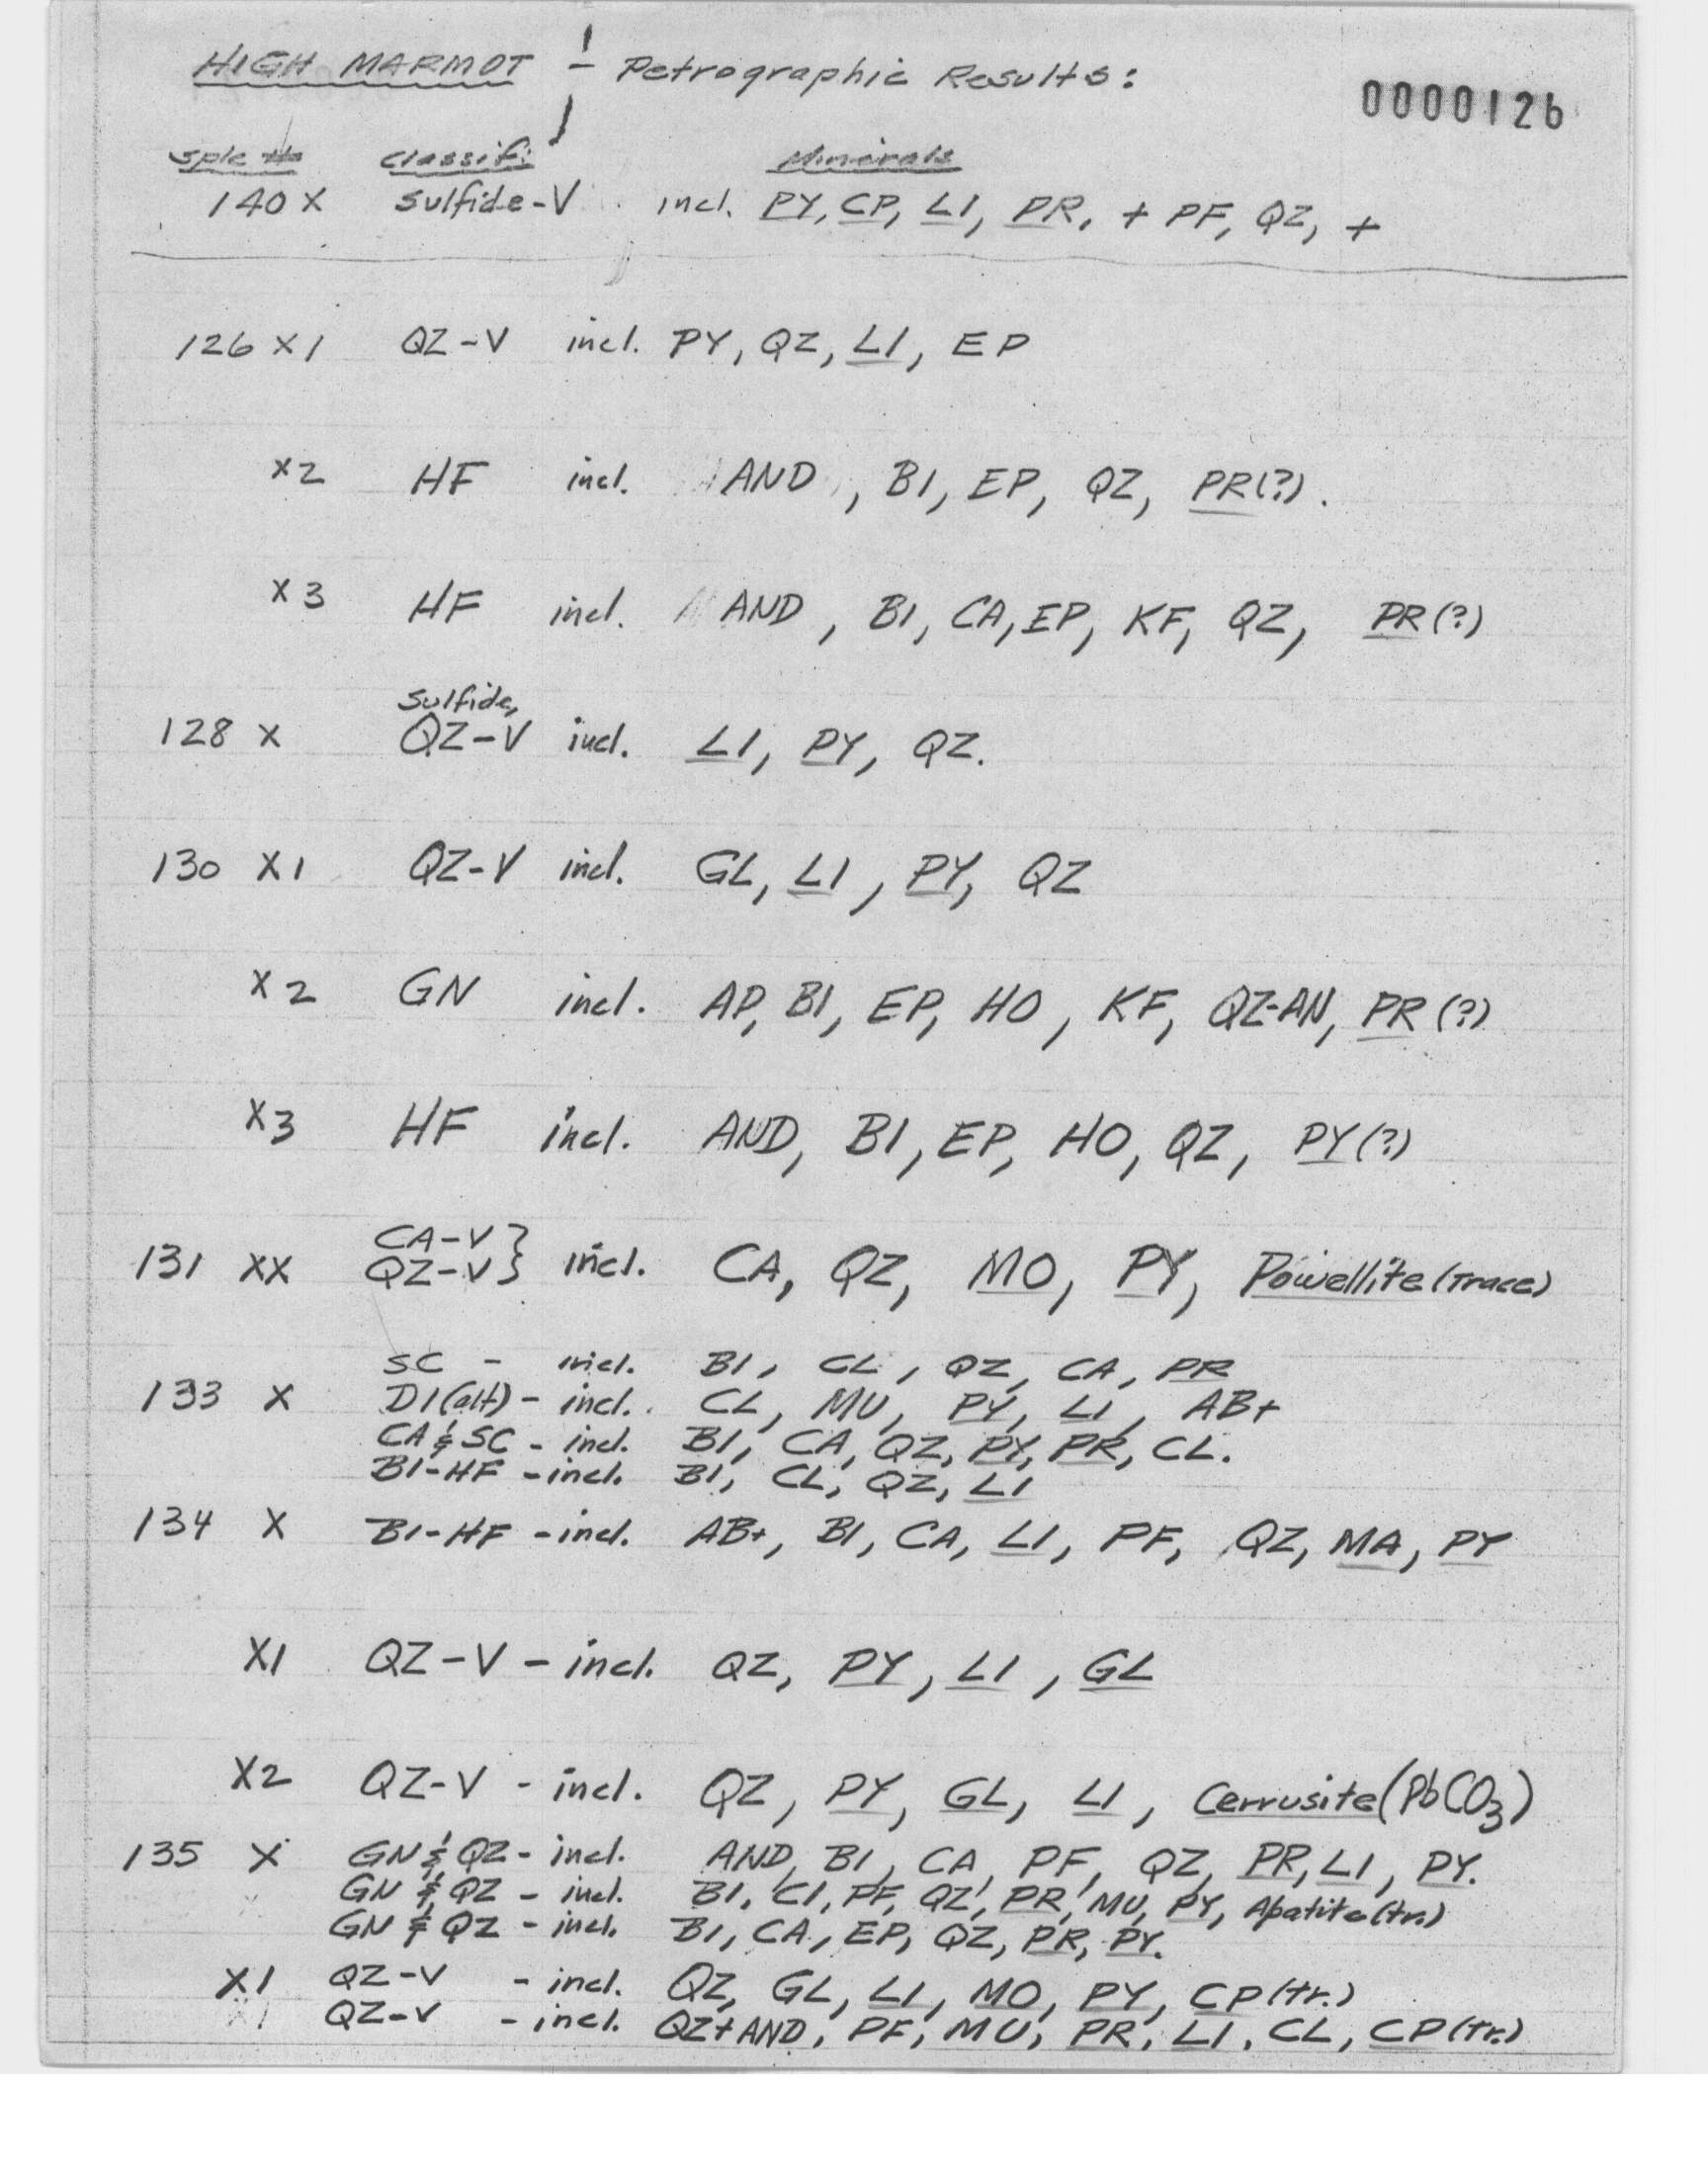 HIGH MARMOT - Petrographic Results:
0000126
Sple # Classif: Minerals
140 X Sulfide-V incl. PY, CP, LI, PR, + PF, QZ, +
126 X1 QZ-V incl. PY, QZ, LI, EP
X2 HF incl. AND, BI, EP, QZ, PR(?).
X3 HF incl. AND, BI, CA, EP, KF, QZ, PR(?)
Sulfide,
128 X QZ-V incl. LI, PY, QZ.
130 X1 QZ-V incl. GL, LI, PY, QZ
X2 GN incl. AP, BI, EP, HO, KF, QZ-AN, PR(?)
X3 HF incl. AND, BI, EP, HO, QZ, PY(?)
CA-V }
131 XX QZ-V } incl. CA, QZ, MO, PY, Powellite (Trace)
SC - incl. BI, CL, QZ, CA, PR
133 X DI(alt) - incl. CL, MU, PY, LI, AB+
CA & SC - incl. BI, CA, QZ, PY, PR, CL.
BI-HF - incl. BI, CL, QZ, LI
134 X BI-HF - incl. AB+, BI, CA, LI, PF, QZ, MA, PY
X1 QZ-V - incl. QZ, PY, LI, GL
X2 QZ-V - incl. QZ, PY, GL, LI, Cerrusite (PbCO3)
135 X GN & QZ - incl. AND, BI, CA, PF, QZ, PR, LI, PY.
GN & QZ - incl. BI, CI, PF, QZ, PR, MU, PY, Apatite (tr.)
GN & QZ - incl. BI, CA, EP, QZ, PR, PY.
X1 QZ-V - incl. QZ, GL, LI, MO, PY, CP (tr.)
QZ-V - incl. QZ+AND, PF, MU, PR, LI, CL, CP (tr.)